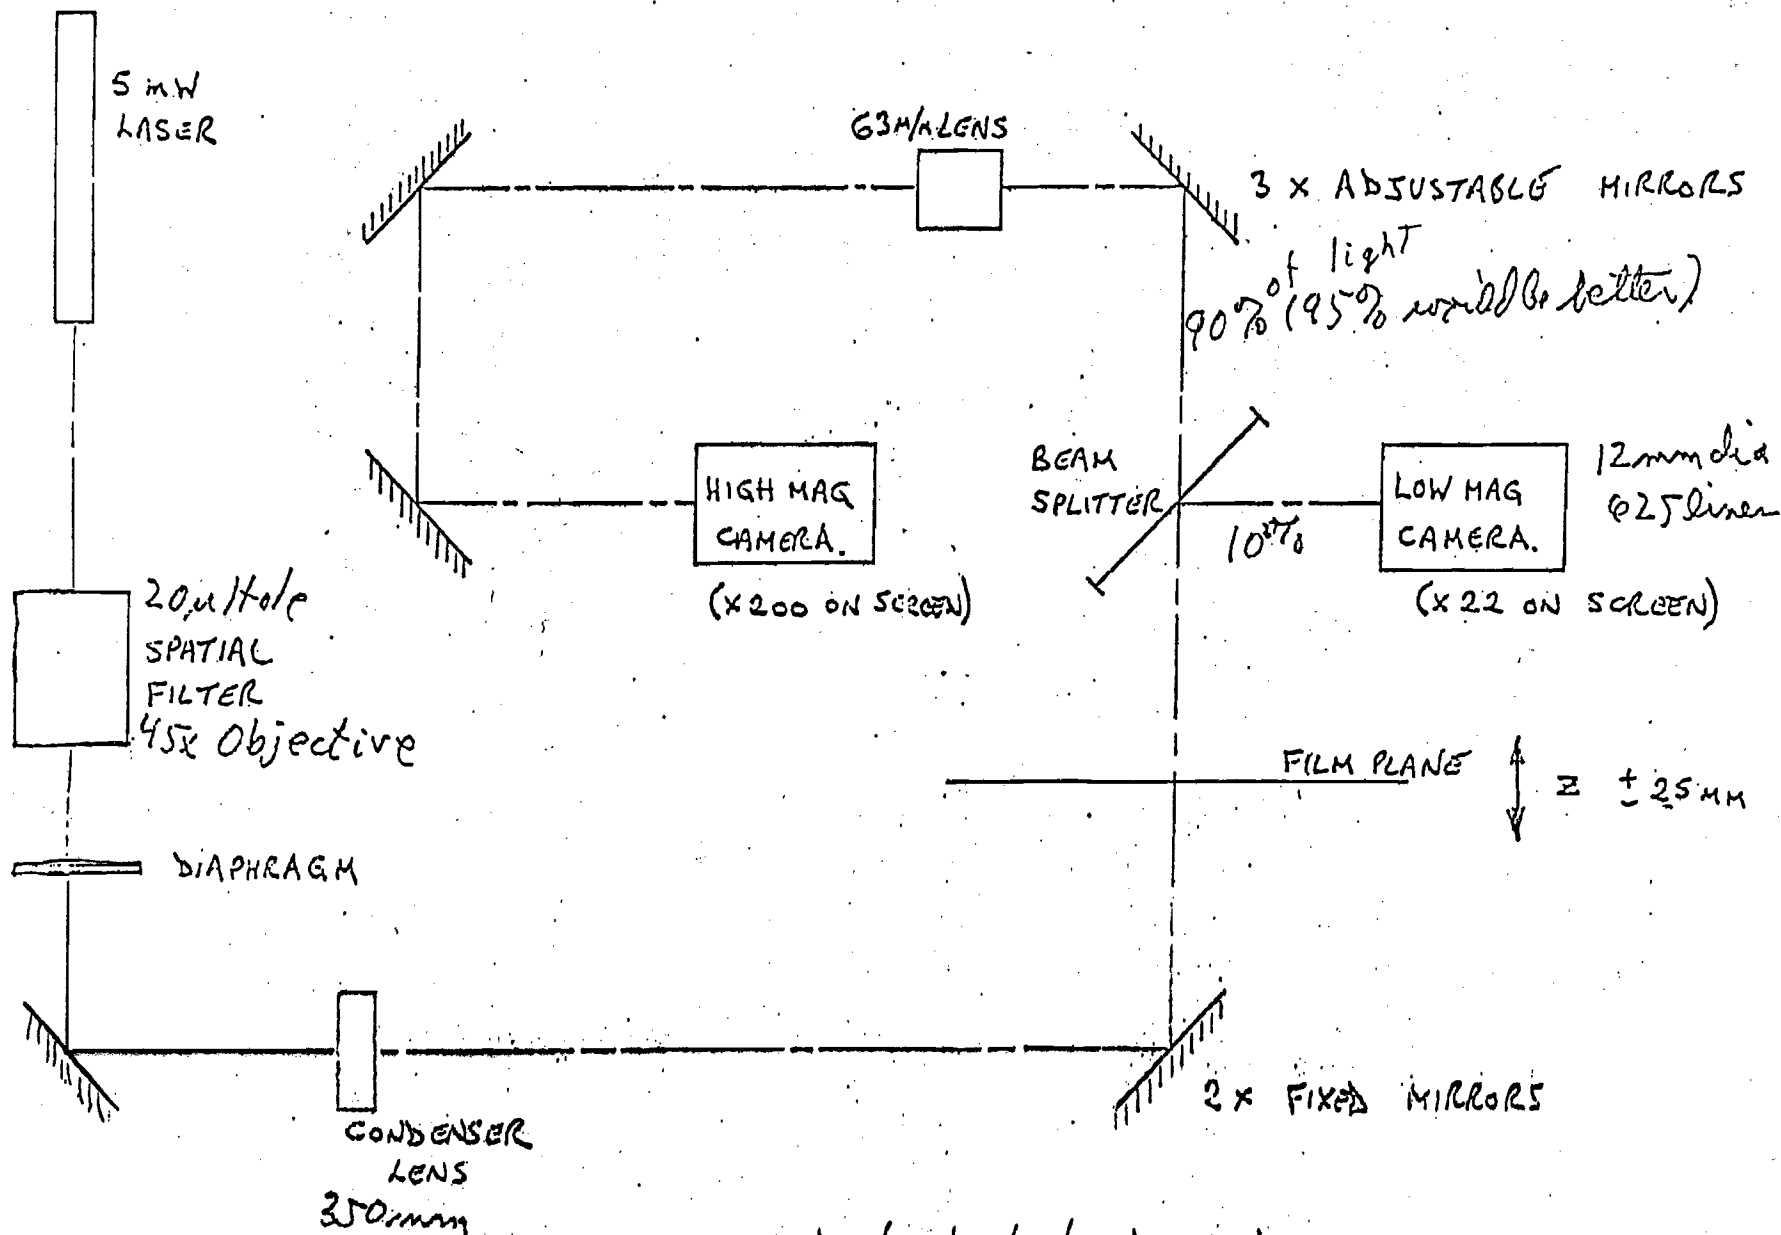 5 mW
LASER
63 M/M LENS
3 x ADJUSTABLE MIRRORS
of light
90% (95% would be better)
BEAM
SPLITTER
10%
HIGH MAG
CAMERA.
(x 200 ON SCREEN)
LOW MAG
CAMERA.
(x 22 ON SCREEN)
12mm dia
625 lines
20μ Hole
SPATIAL
FILTER
45x Objective
FILM PLANE
Z ± 25 MM
DIAPHRAGM
2 x FIXED MIRRORS
CONDENSER
LENS
350mm